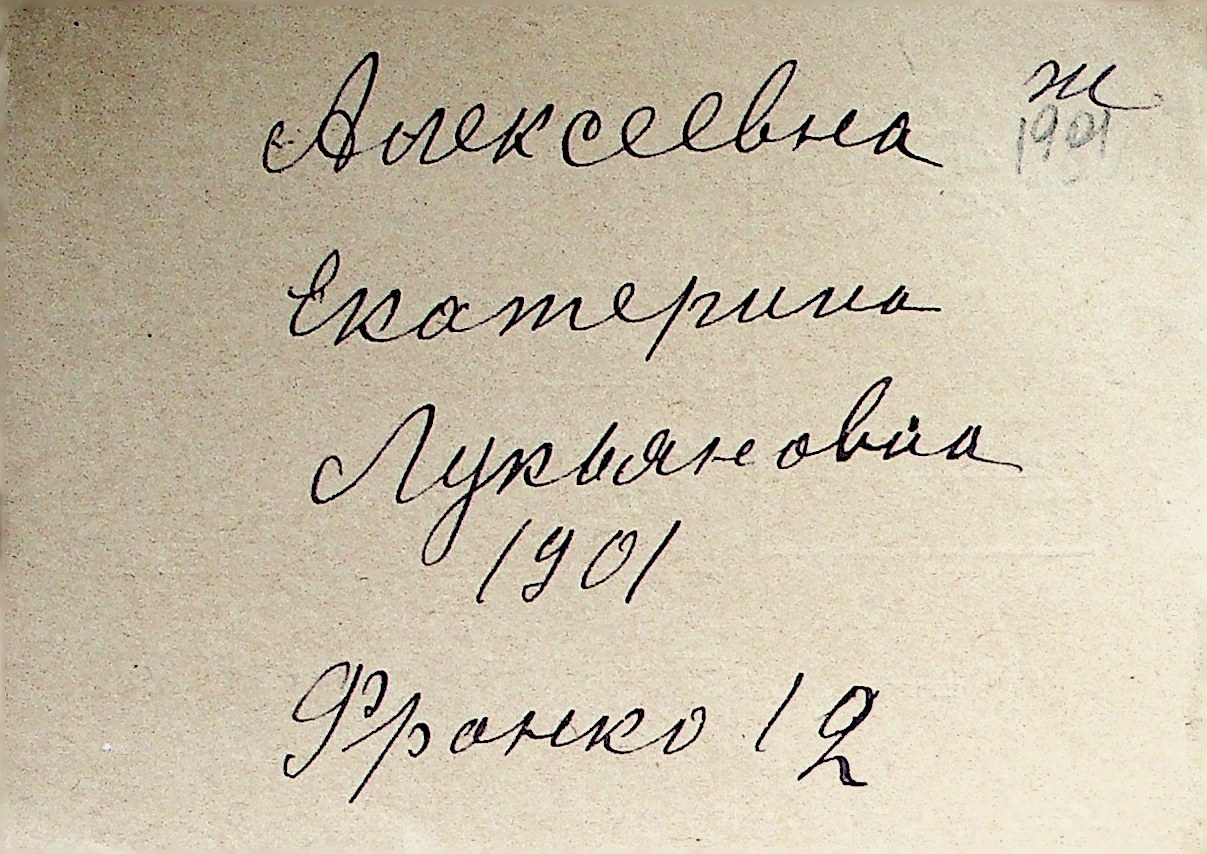 Алексеевна ж
1901
Екатерина
Лукьяновна
1901
Франко 12